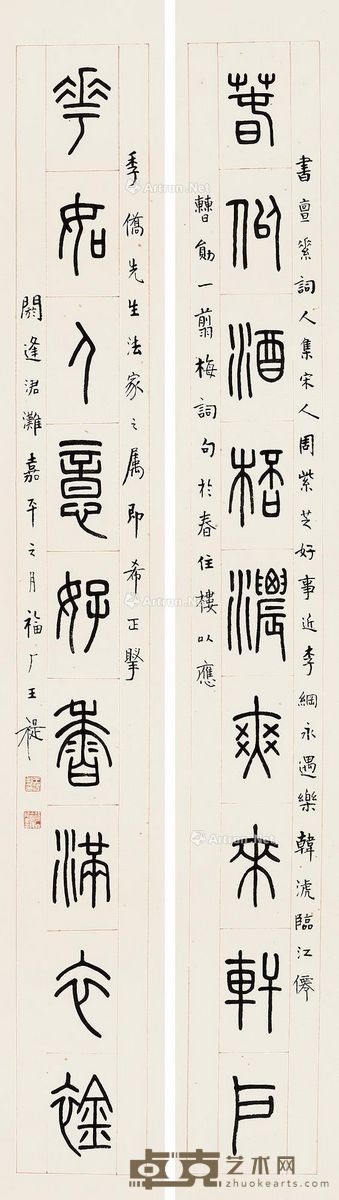 春似酒桮濃爽来軒戶
書亶爰詞人集宋人周紫芝好事近李綱永遇樂韓淲臨江僊
勛一翦梅詞句於春住樓以應
花如人意好香滿衣
季僑先生法家之属即希正擘
閼逢涒灘嘉平之月福厂王禔
Artron.Net
卓克艺术网
www.zhuokearts.com